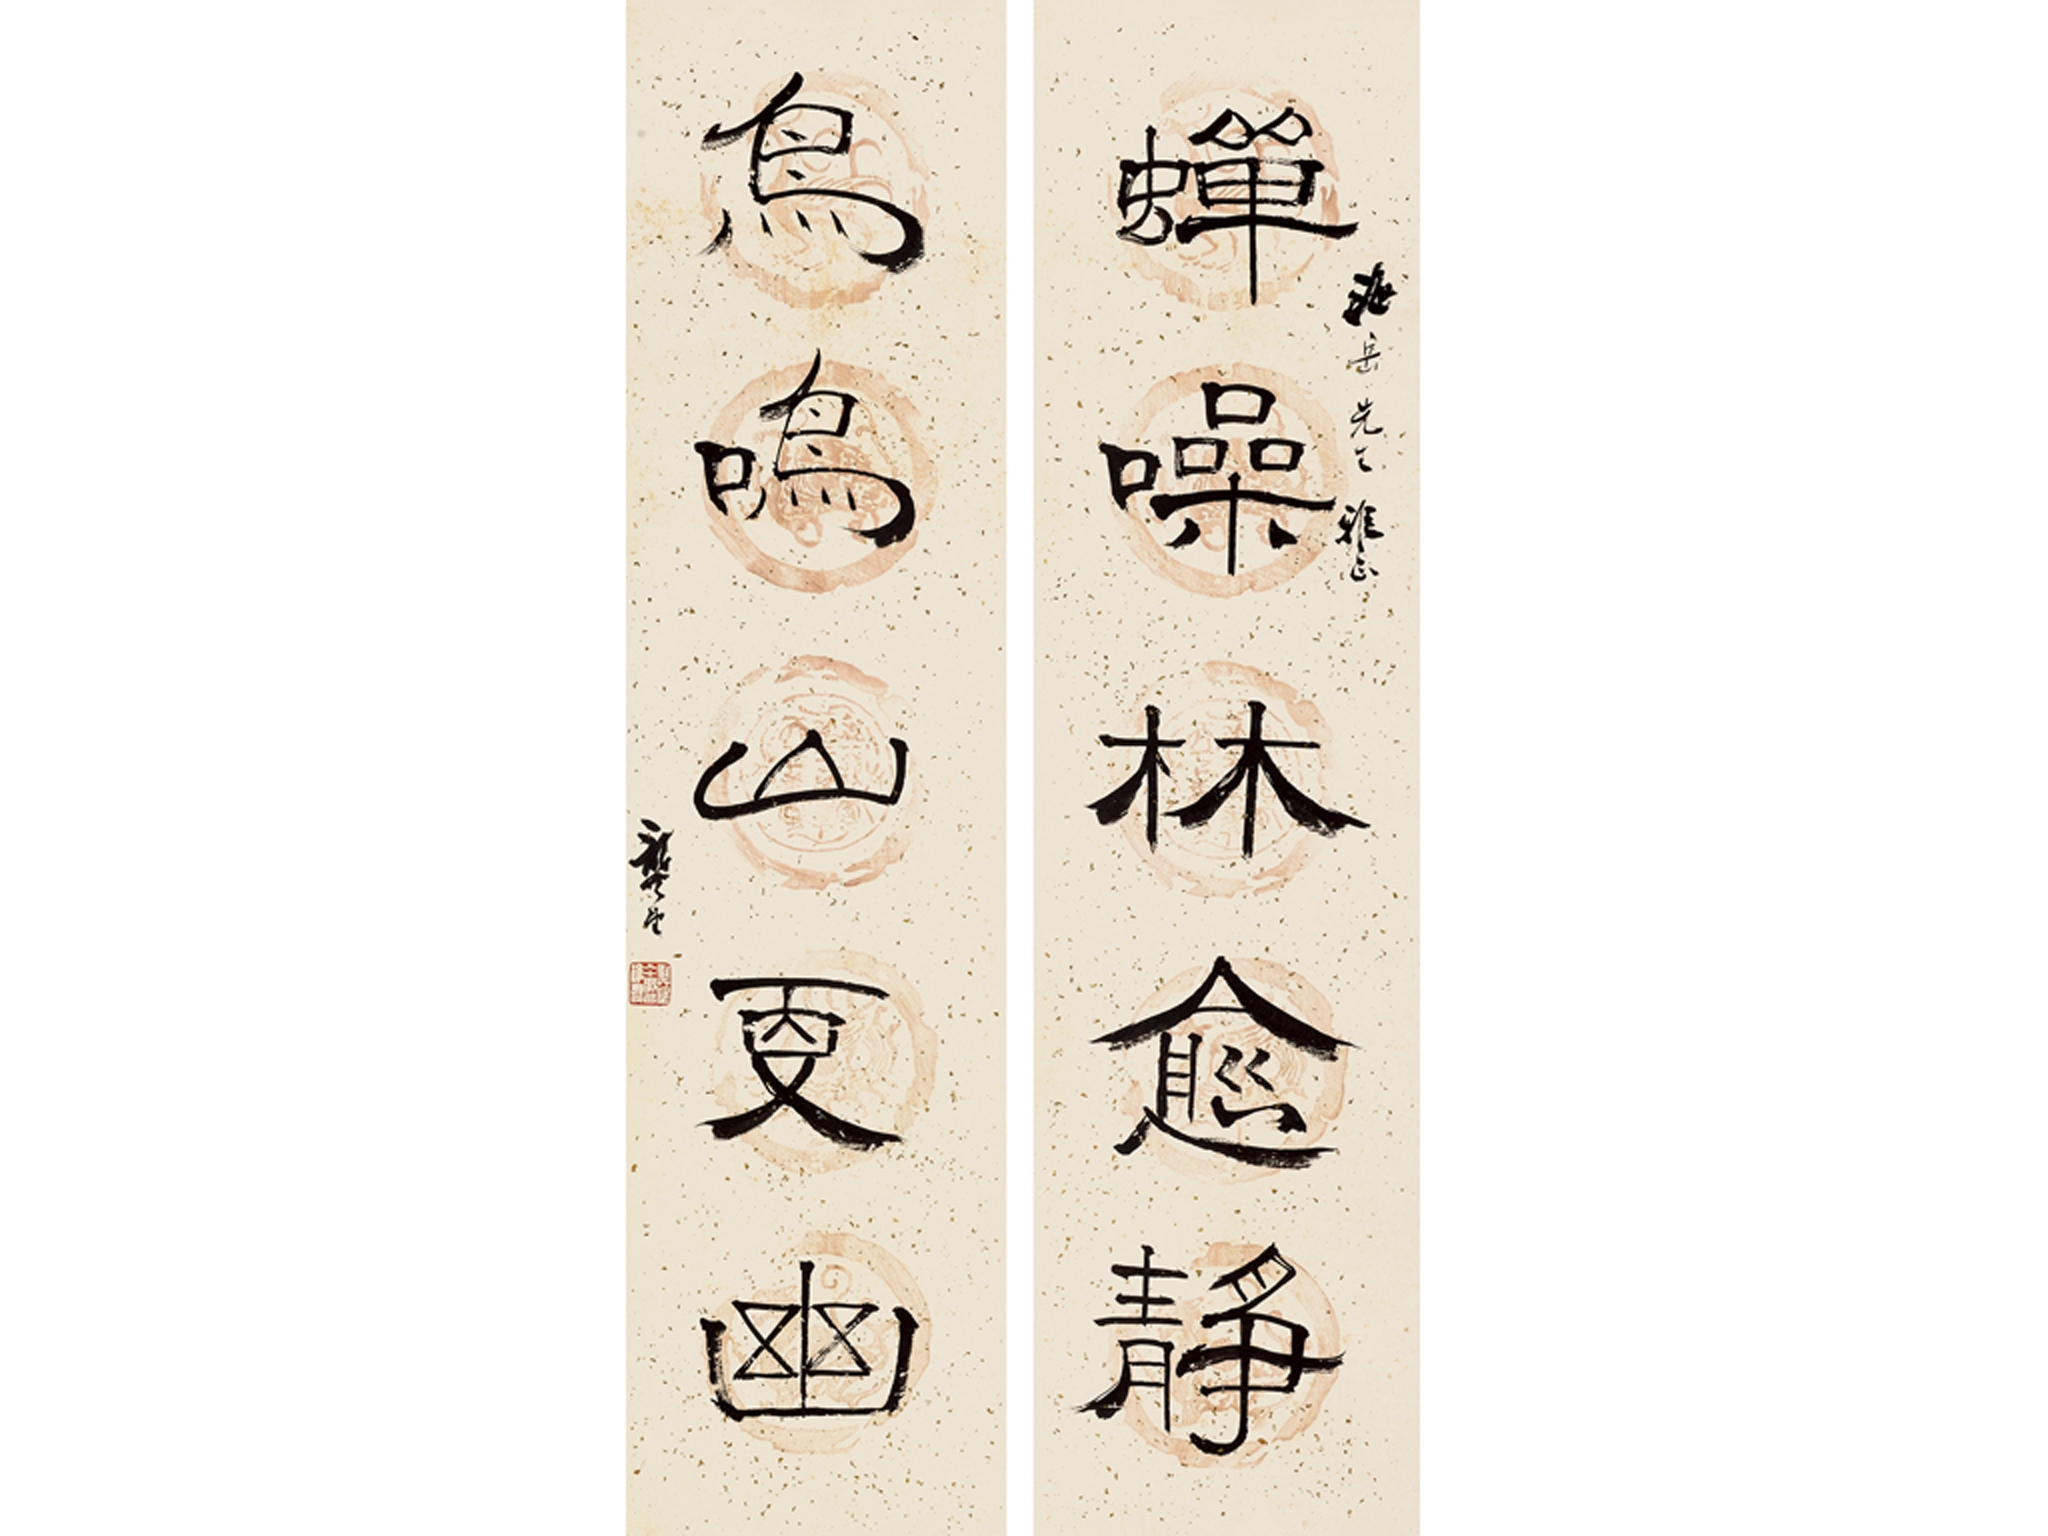 海岳先生雅正
蟬噪林愈靜
鳥鳴山更幽
龔望